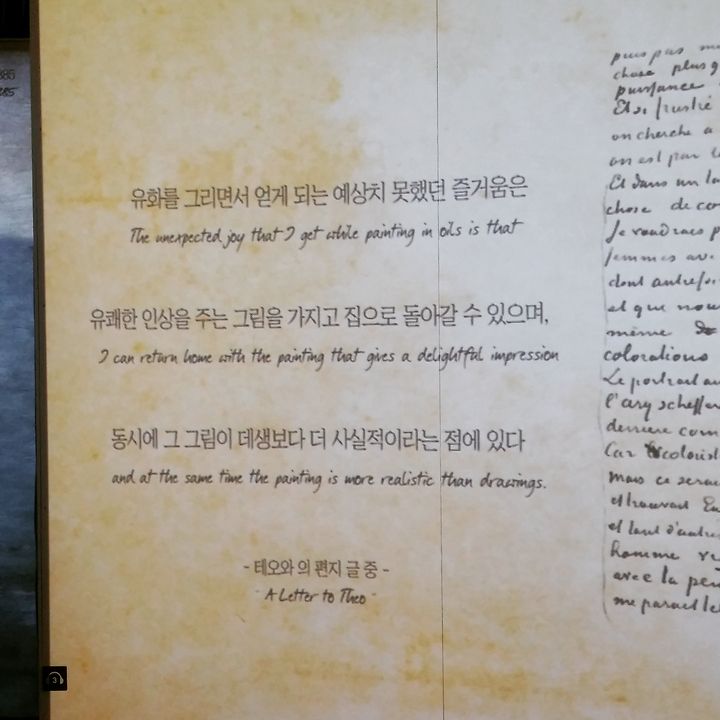 유화를 그리면서 얻게 되는 예상치 못했던 즐거움은
The unexpected joy that I get while painting in oils is that
유쾌한 인상을 주는 그림을 가지고 집으로 돌아갈 수 있으며,
I can return home with the painting that gives a delightful impression
동시에 그 그림이 데생보다 더 사실적이라는 점에 있다
and at the same time the painting is more realistic than drawings.
- 테오와의 편지 글 중 -
A Letter to Theo
puis pas
chose plus
puissance
Et si frustré
on cherche a
on est par
Et dans un
chose de
Je voudrais
femmes
dont
et que
même
colorations
Le portrait
l'ary scheffer
derriere
Car coloris
mais ce
et trouvant
et tant
homme
avec la
me parait
3